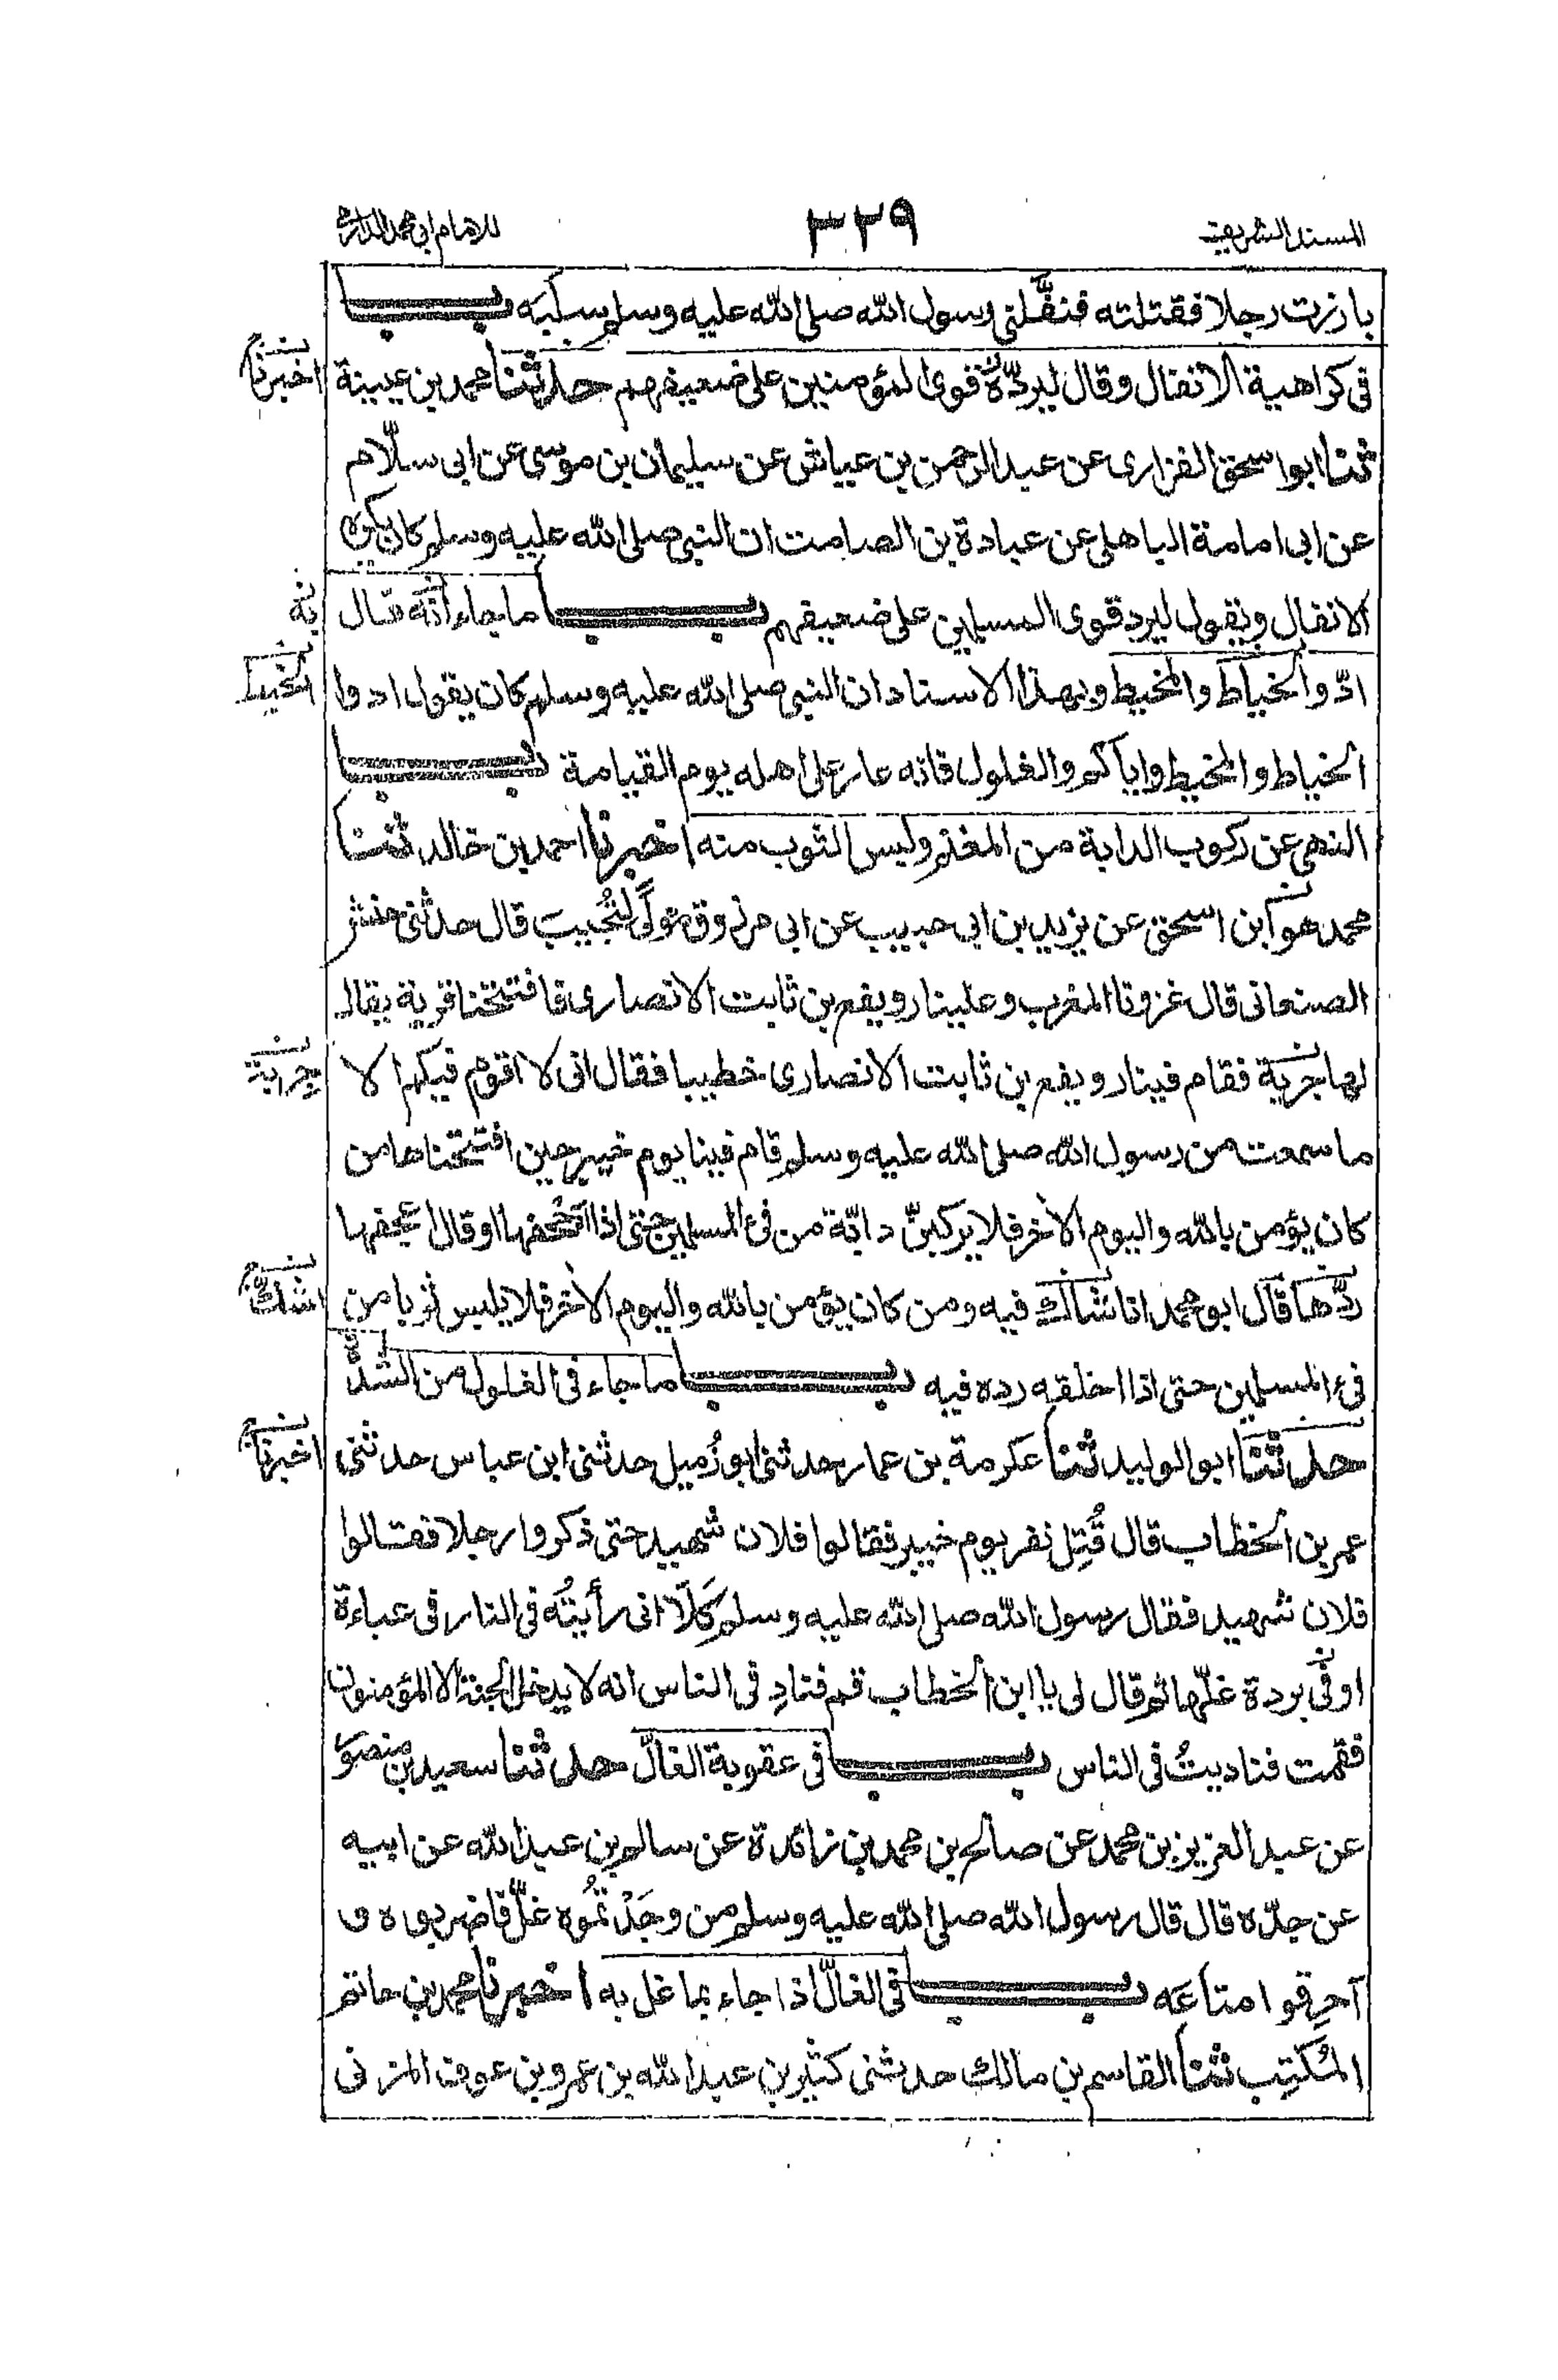 المسند الشريف ٣٢٩ للامام ابي محمد الدارمي
بارزت رجلا فقتلته فنفّلني رسول الله صلى الله عليه وسلم سلبه باب
في كراهية الانفال وقال ليردّ قوى المؤمنين على ضعيفهم حدثنا محمد بن عيينة
اخبرنا
ثنا ابو اسحق الفزارى عن عبد الرحمن بن عياش عن سليمان بن موسى عن ابى سلّام
عن ابى امامة الباهلى عن عبادة بن الصامت ان النبي صلى الله عليه وسلم كان يكره
الانفال ويقول ليرد قوى المسلمين على ضعيفهم باب ما جاء انّه قال
بنه
ادّوا الخياط والمخيط وبهذا الاسناد ان النبي صلى الله عليه وسلم كان يقول ادوا
المخيط
الخياط والمخيط واياكم والغلول فانه عار على اهله يوم القيامة باب
النهى عن ركوب الدابة من المغنم ولبس الثوب منه اخبرنا احمد بن خالد ثنا
محمد هو ابن اسحق عن يزيد بن ابي حبيب عن ابى مرزوق مولًى لتُجيبَ قال حدثنى حنش
الصنعانى قال غزونا المغرب وعلينا رويفع بن ثابت الانصارى فافتتحنا قرية يقال
لها جربة فقام فينا رويفع بن ثابت الانصارى خطيبا فقال انى لا اقوم فيكم الا
جربة
ما سمعت من رسول الله صلى الله عليه وسلم قام فينا يوم خيبر حين افتتحناها من
كان يؤمن بالله واليوم الاٰخر فلا يركبنّ دابّة من فئ المسلمين حتى اذا اجحفها او قال اعجفها
ردّها قال ابو محمد انا شاك فيه ومن كان يؤمن بالله واليوم الاٰخر فلا يلبس ثوبا من
اشكّ
فئ المسلمين حتى اذا اخلقه رده فيه باب ما جاء فى الغلول من الشدّة
حدثنا ابو الوليد ثنا عكرمة بن عمار حدثنى ابو زُميل حدثنى ابن عباس حدثنى
اخبرنا
عمر بن الخطاب قال قُتِل نفر يوم خيبر فقالوا فلان شهيد حتى ذكروا رجلا فقالوا
فلان شهيد فقال رسول الله صلى الله عليه وسلم كَلّا انى رأيتُه فى النار فى عباءة
او فى بردة غلّها ثم قال لى يا ابن الخطاب قم فنادِ فى الناس انه لا يدخل الجنة الا المؤمنون
فقمت فناديتُ فى الناس باب فى عقوبة الغالّ حدثنا سعيد بن منصور
عن عبد العزيز بن محمد عن صالح بن محمد بن زائدة عن سالم بن عبد الله عن ابيه
عن جدّه قال قال رسول الله صلى الله عليه وسلم من وجَدْتُمُوه غلّ فاضربوه و
آحرِقوا متاعَه باب فى الغالّ اذا جاء بما غل به اخبرنا محمد بن حاتم
المُكتِب ثنا القاسم بن مالك حدثنى كثير بن عبد الله بن عمرو بن عوف المزنى